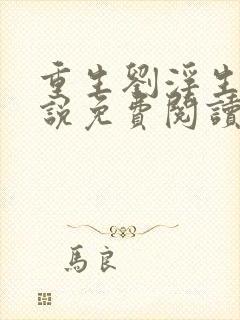 重生劉淫生
說免費閱讀
馬良